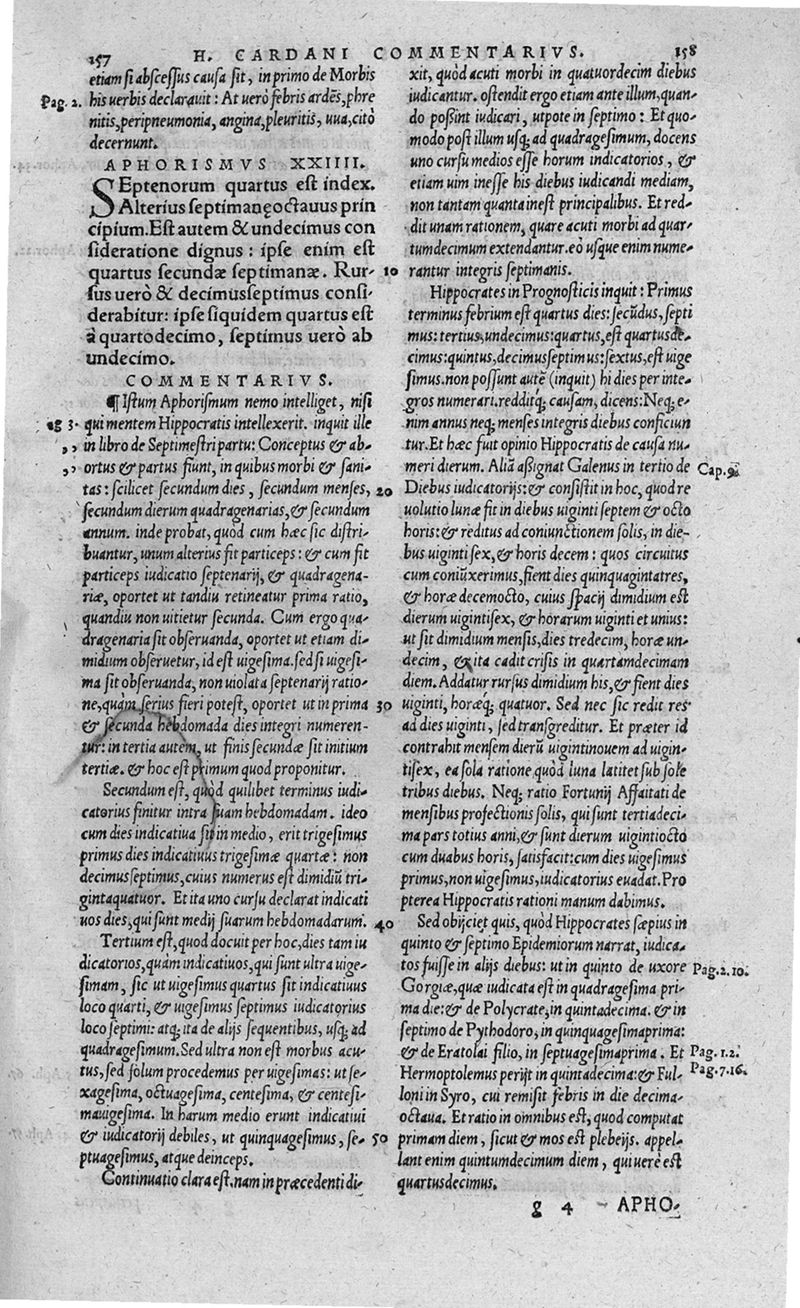 157 H. CARDANI COMMENTARIVS. 158
etiam si abscessus causa sit, in primo de Morbis
Pag. 2. his uerbis declarauit: At uerò febris ardēs, phre
nitis, peripneumonia, angina, pleuritis, uua, citò
decernunt.
APHORISMVS XXIIII.
SEptenorum quartus est index.
Alterius septimanę octauus prin
cipium. Est autem & undecimus con
sideratione dignus: ipse enim est
quartus secundæ septimanæ. Rur-
sus uerò & decimusseptimus consi-
derabitur: ipse siquidem quartus est
à quartodecimo, septimus uerò ab
undecimo.
COMMENTARIVS.
¶ Istum Aphorismum nemo intelliget, nisi
ag 3. qui mentem Hippocratis intellexerit. inquit ille
,, in libro de Septimestri partu: Conceptus & ab-
,, ortus & partus fiunt, in quibus morbi & sani-
tas: scilicet secundum dies, secundum menses,
secundum dierum quadragenarias, & secundum
annum. inde probat, quod cum hæc sic distri-
buantur, unum alterius fit particeps: & cum fit
particeps iudicatio septenarij, & quadragena-
riæ, oportet ut tandiu retineatur prima ratio,
quandiu non uitietur secunda. Cum ergo qua-
dragenaria sit obseruanda, oportet ut etiam di-
midium obseruetur, id est uigesima. sed si uigesi-
ma sit obseruanda, non uiolata septenarij ratio-
ne, quàm serius fieri potest, oportet ut in prima
& secunda hebdomada dies integri numeren-
tur: in tertia autem, ut finis secundæ sit initium
tertiæ. & hoc est primum quod proponitur.
Secundum est, quòd quilibet terminus iudi-
catorius finitur intra suam hebdomadam. ideo
cum dies indicatiua sit in medio, erit trigesimus
primus dies indicatiuus trigesimæ quartæ: non
decimusseptimus, cuius numerus est dimidiū tri-
gintaquatuor. Et ita uno cursu declarat indicati
uos dies, qui sunt medij suarum hebdomadarum.
Tertium est, quod docuit per hoc, dies tam iu
dicatorios, quàm indicatiuos, qui sunt ultra uige-
simam, sic ut uigesimus quartus sit indicatiuus
loco quarti, & uigesimus septimus iudicatorius
loco septimi: atq; ita de alijs sequentibus, usq; ad
quadragesimum. Sed ultra non est morbus acu-
tus, sed solum procedemus per uigesimas: ut se-
xagesima, octuagesima, centesima, & centesi-
mauigesima. In harum medio erunt indicatiui
& iudicatorij debiles, ut quinquagesimus, se-
ptuagesimus, atque deinceps.
Continuatio clara est. nam in præcedenti di-
10
20
30
40
50
xit, quòd acuti morbi in quatuordecim diebus
iudicantur. ostendit ergo etiam ante illum, quan-
do possint iudicari, utpote in septimo: Et quo-
modo post illum usq; ad quadragesimum, docens
uno cursu medios esse horum indicatorios, &
etiam uim inesse his diebus iudicandi mediam,
non tantam quanta inest principalibus. Et red-
dit unam rationem, quare acuti morbi ad quar-
tumdecimum extendantur. eò usque enim nume-
rantur integris septimanis.
Hippocrates in Prognosticis inquit: Primus
terminus febrium est quartus dies: secūdus, septi
mus: tertius, undecimus: quartus, est quartusde-
cimus: quintus, decimusseptimus: sextus, est uige
simus. non possunt autē (inquit) hi dies per inte-
gros numerari. redditq; causam, dicens: Neq; e-
nim annus neq; menses integris diebus conficiun
tur. Et hæc fuit opinio Hippocratis de causa nu-
meri dierum. Aliā aßignat Galenus in tertio de Cap. 9.
Diebus iudicatorijs: & consistit in hoc, quod re
uolutio lunæ fit in diebus uiginti septem & octo
horis: & reditus ad coniunctionem solis, in die-
bus uiginti sex, & horis decem: quos circuitus
cum coniūxerimus, fient dies quinquagintatres,
& horæ decemocto, cuius spacij dimidium est
dierum uigintisex, & horarum uiginti et unius:
ut sit dimidium mensis, dies tredecim, horæ un-
decim, & ita cadit crisis in quartamdecimam
diem. Addatur rursus dimidium his, & fient dies
uiginti, horæq́; quatuor. Sed nec sic redit res
ad dies uiginti, sed transgreditur. Et præter id
contrahit mensem dierū uigintinouem ad uigin-
tisex, ea sola ratione quòd luna latitet sub sole
tribus diebus. Neq; ratio Fortunij Affaitati de
mensibus profectionis solis, qui sunt tertiadeci-
ma pars totius anni, & sunt dierum uigintiocto
cum duabus horis, satisfacit: cum dies uigesimus
primus, non uigesimus, iudicatorius euadat. Pro
pterea Hippocratis rationi manum dabimus.
Sed obijciet quis, quòd Hippocrates sæpius in
quinto & septimo Epidemiorum narrat, iudica-
tos fuisse in alijs diebus: ut in quinto de uxore Pag. 2. 10.
Gorgiæ, quæ iudicata est in quadragesima pri-
ma die: & de Polycrate, in quintadecima. & in
septimo de Pythodoro, in quinquagesimaprima:
& de Eratolai filio, in septuagesimaprima. Et Pag. 1. 2.
Hermoptolemus perijt in quintadecima: & Ful- Pag. 7. 16.
loni in Syro, cui remisit febris in die decima-
octaua. Et ratio in omnibus est, quod computat
primam diem, sicut & mos est plebeijs. appel-
lant enim quintumdecimum diem, qui uerè est
quartusdecimus.
g 4 APHO-